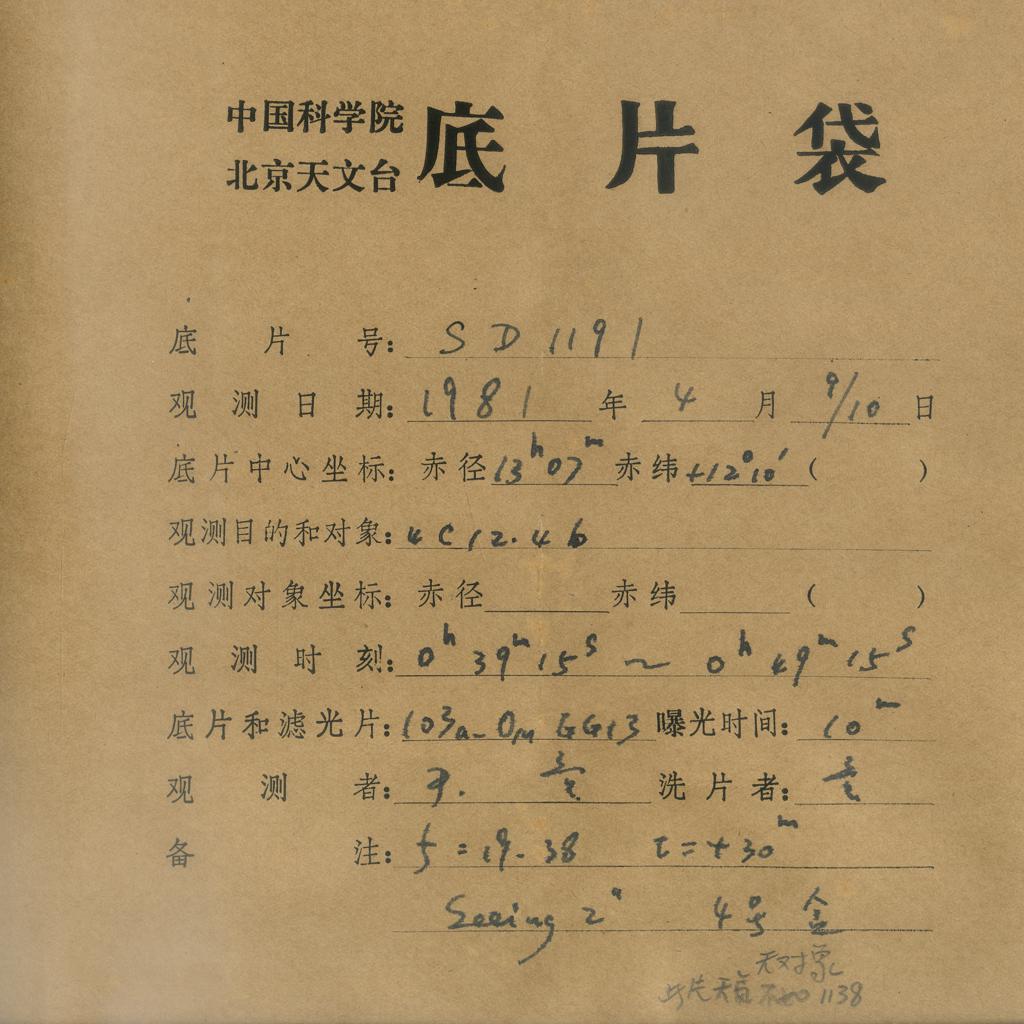 中国科学院
北京天文台
底片袋
底片号: SD1191
观测日期: 1981年 4月 9/10日
底片中心坐标: 赤径13h07m赤纬+12°10′( )
观测目的和对象: 4C12.46
观测对象坐标: 赤径 赤纬 ( )
观测时刻: 0h39m15s ~ 0h49m15s
底片和滤光片: 103a-O GG13 曝光时间: 10m
观测者: 洗片者:
备注: = 19.38 t=+30m
Seeing 2" 4号盒
无对象
此片 不如1138